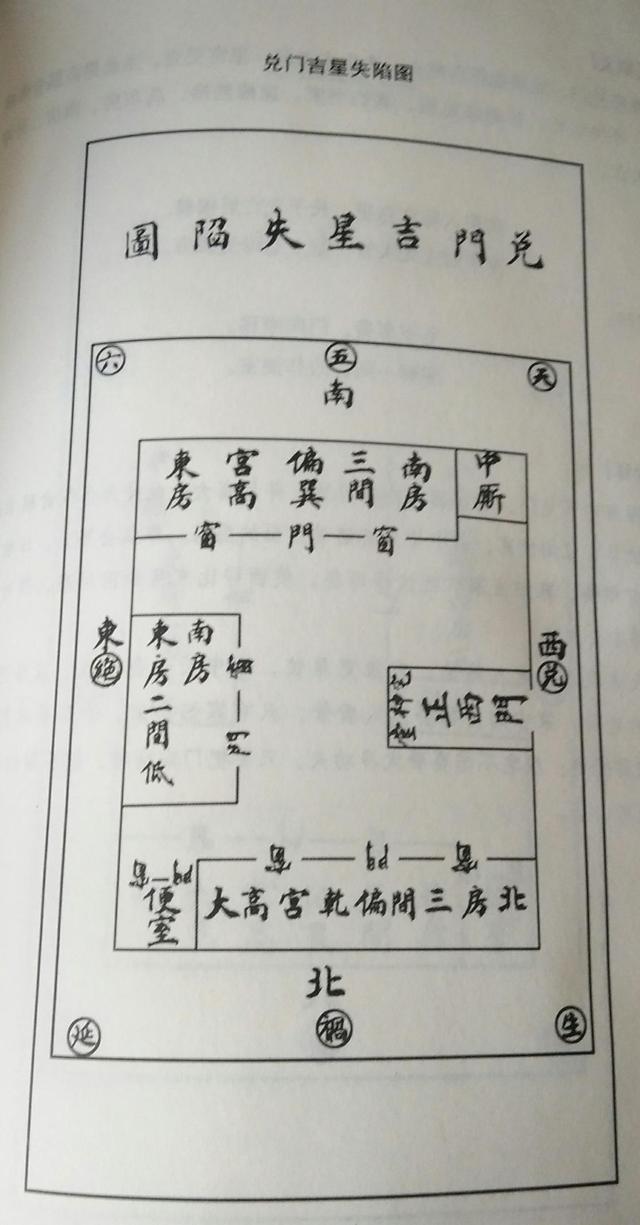 兑门吉星失陷图
兌門吉星失陷圖
六
五
天
南
南房三間偏巽宮高東房
中厠
窗 門 窗
東
絕
南房東房二間低
窗
門
西
兌
正西門
窗 門 窗
門 窗
便室
北房三間偏乾宮高大
北
延
禍
生